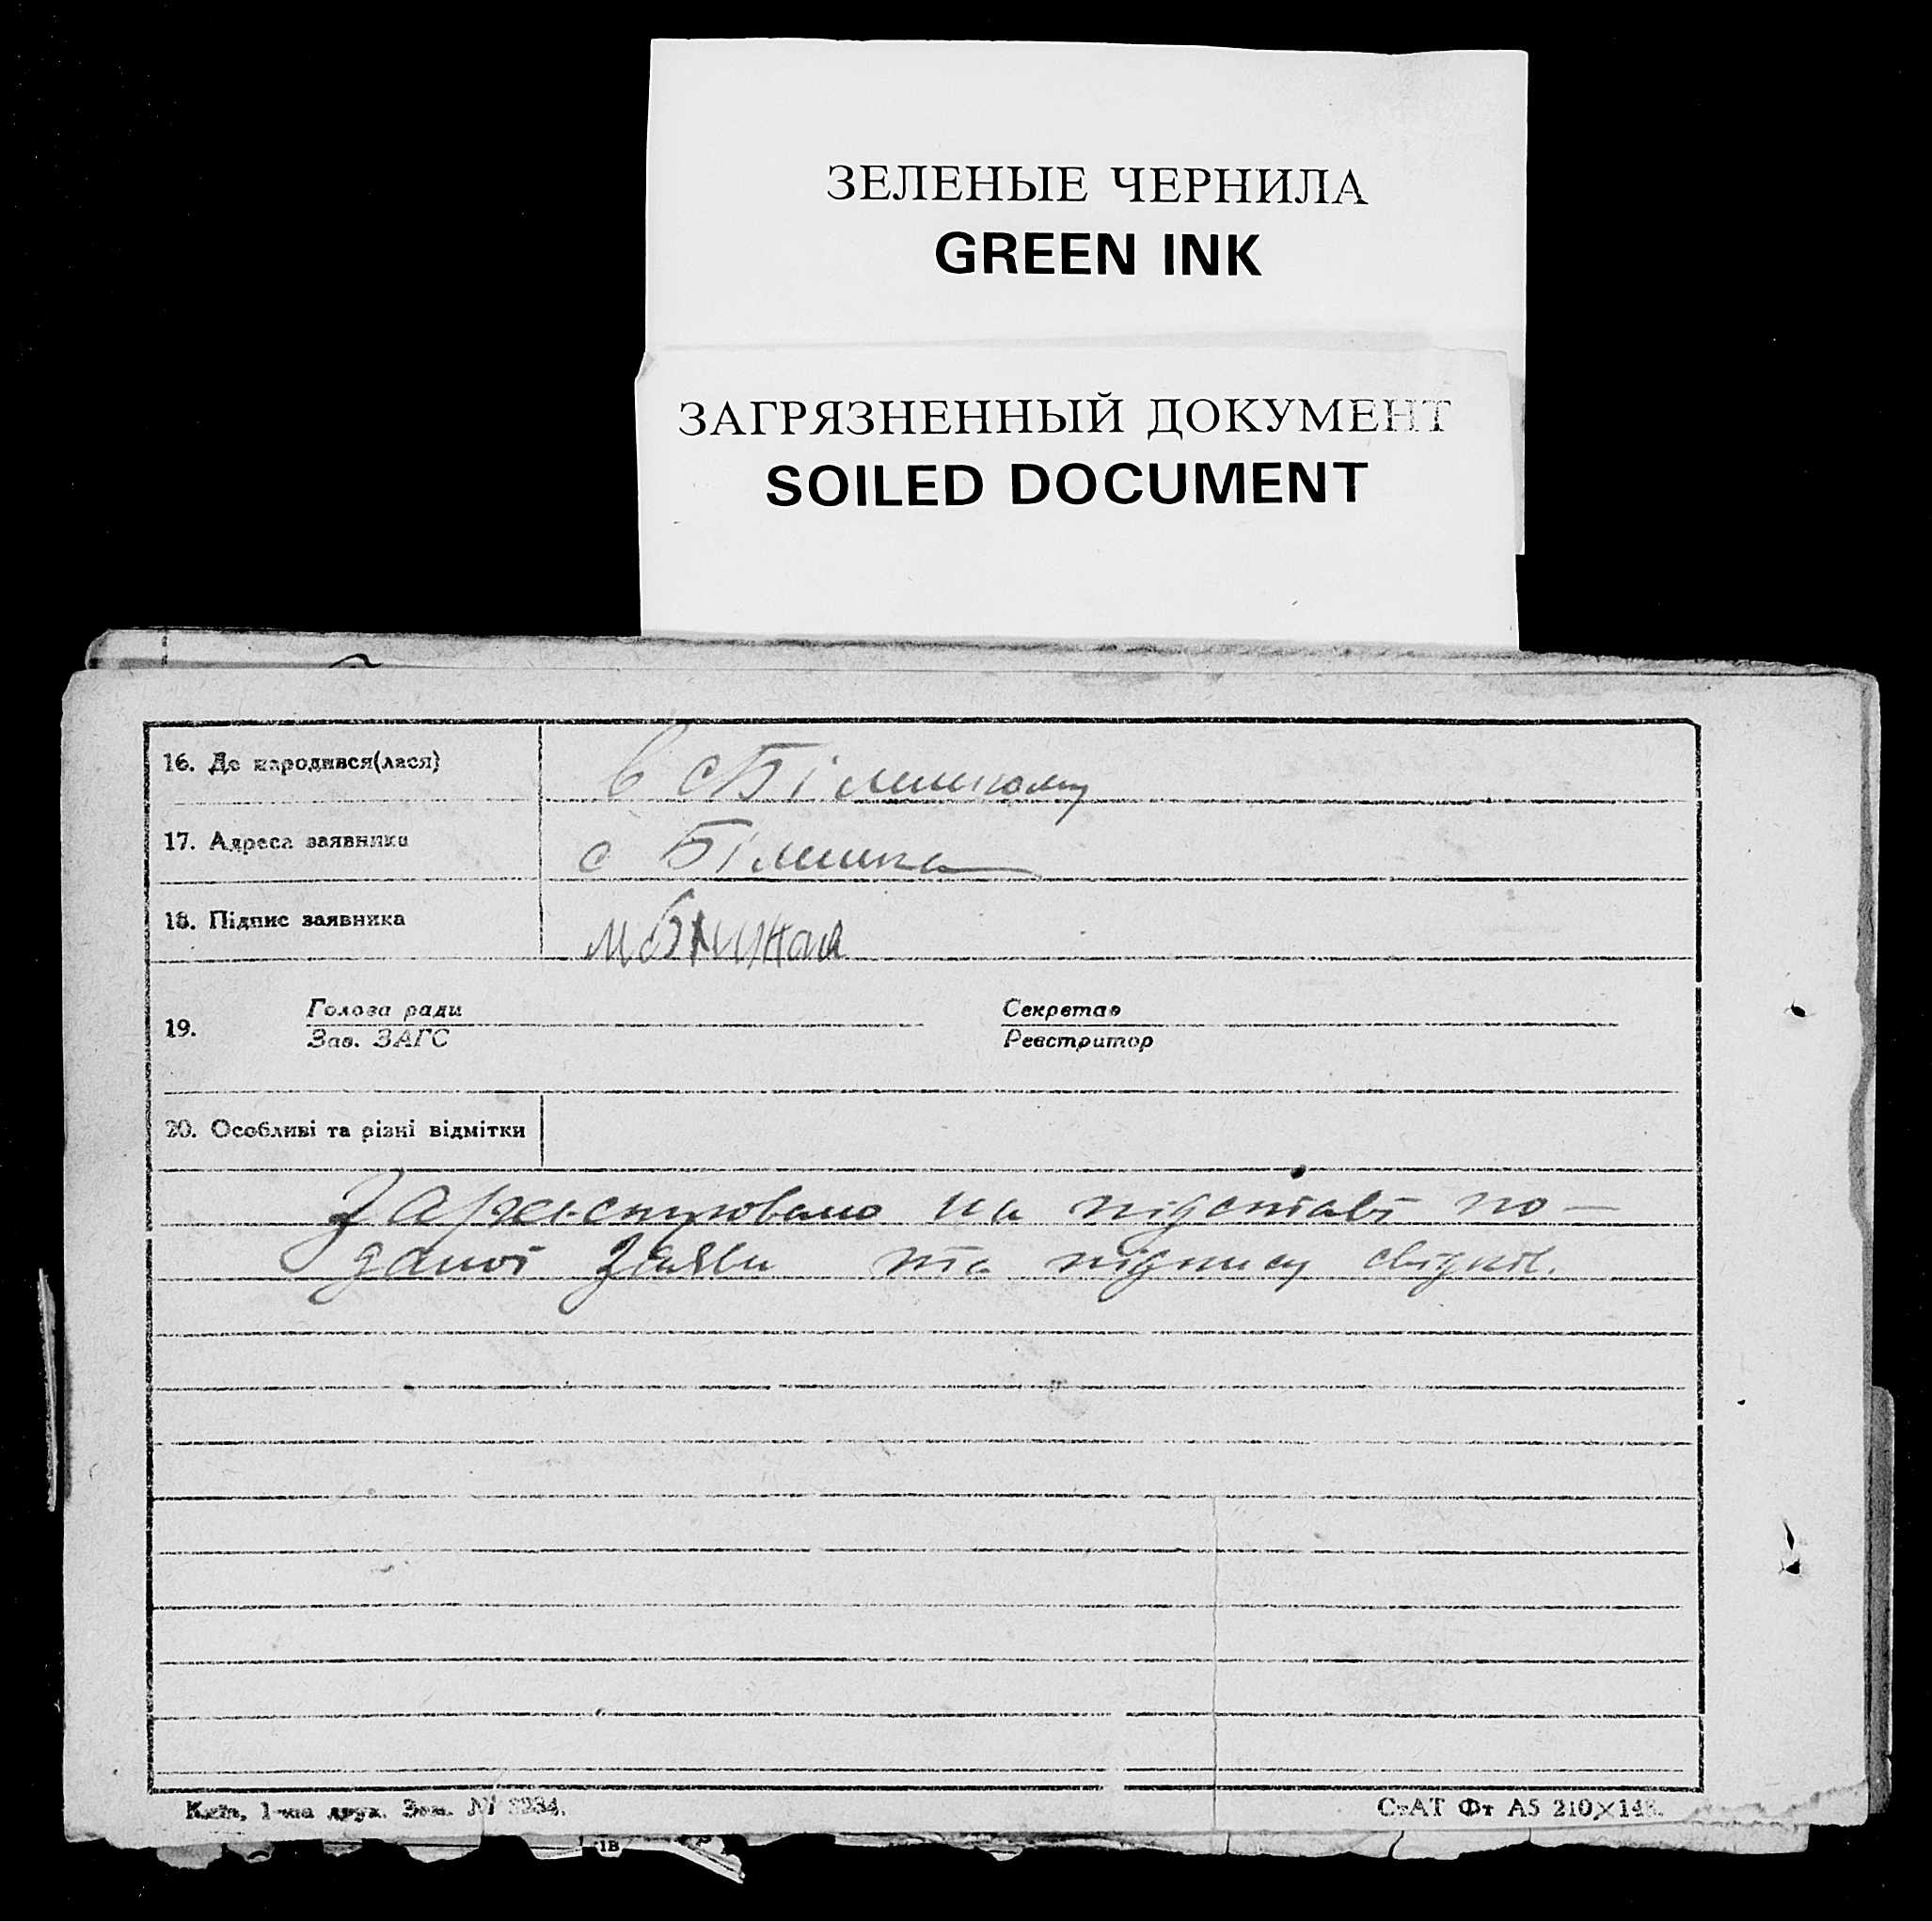 ЗЕЛЕНЫЕ ЧЕРНИЛА
GREEN INK
ЗАГРЯЗНЕННЫЙ ДОКУМЕНТ
SOILED DOCUMENT
16. Де народився(лася)
17. Адреса заявника
с
18. Підпис заявника
19.
Голова ради
Зав. ЗАГС
Секретар
Реєстратор
20. Особливі та різні відмітки
Зареєстровано на підставі по-
даної заяви та підпису свідків.
Київ, 1-ша друк. Зам. №
СтАТ Фт А5 210×148.